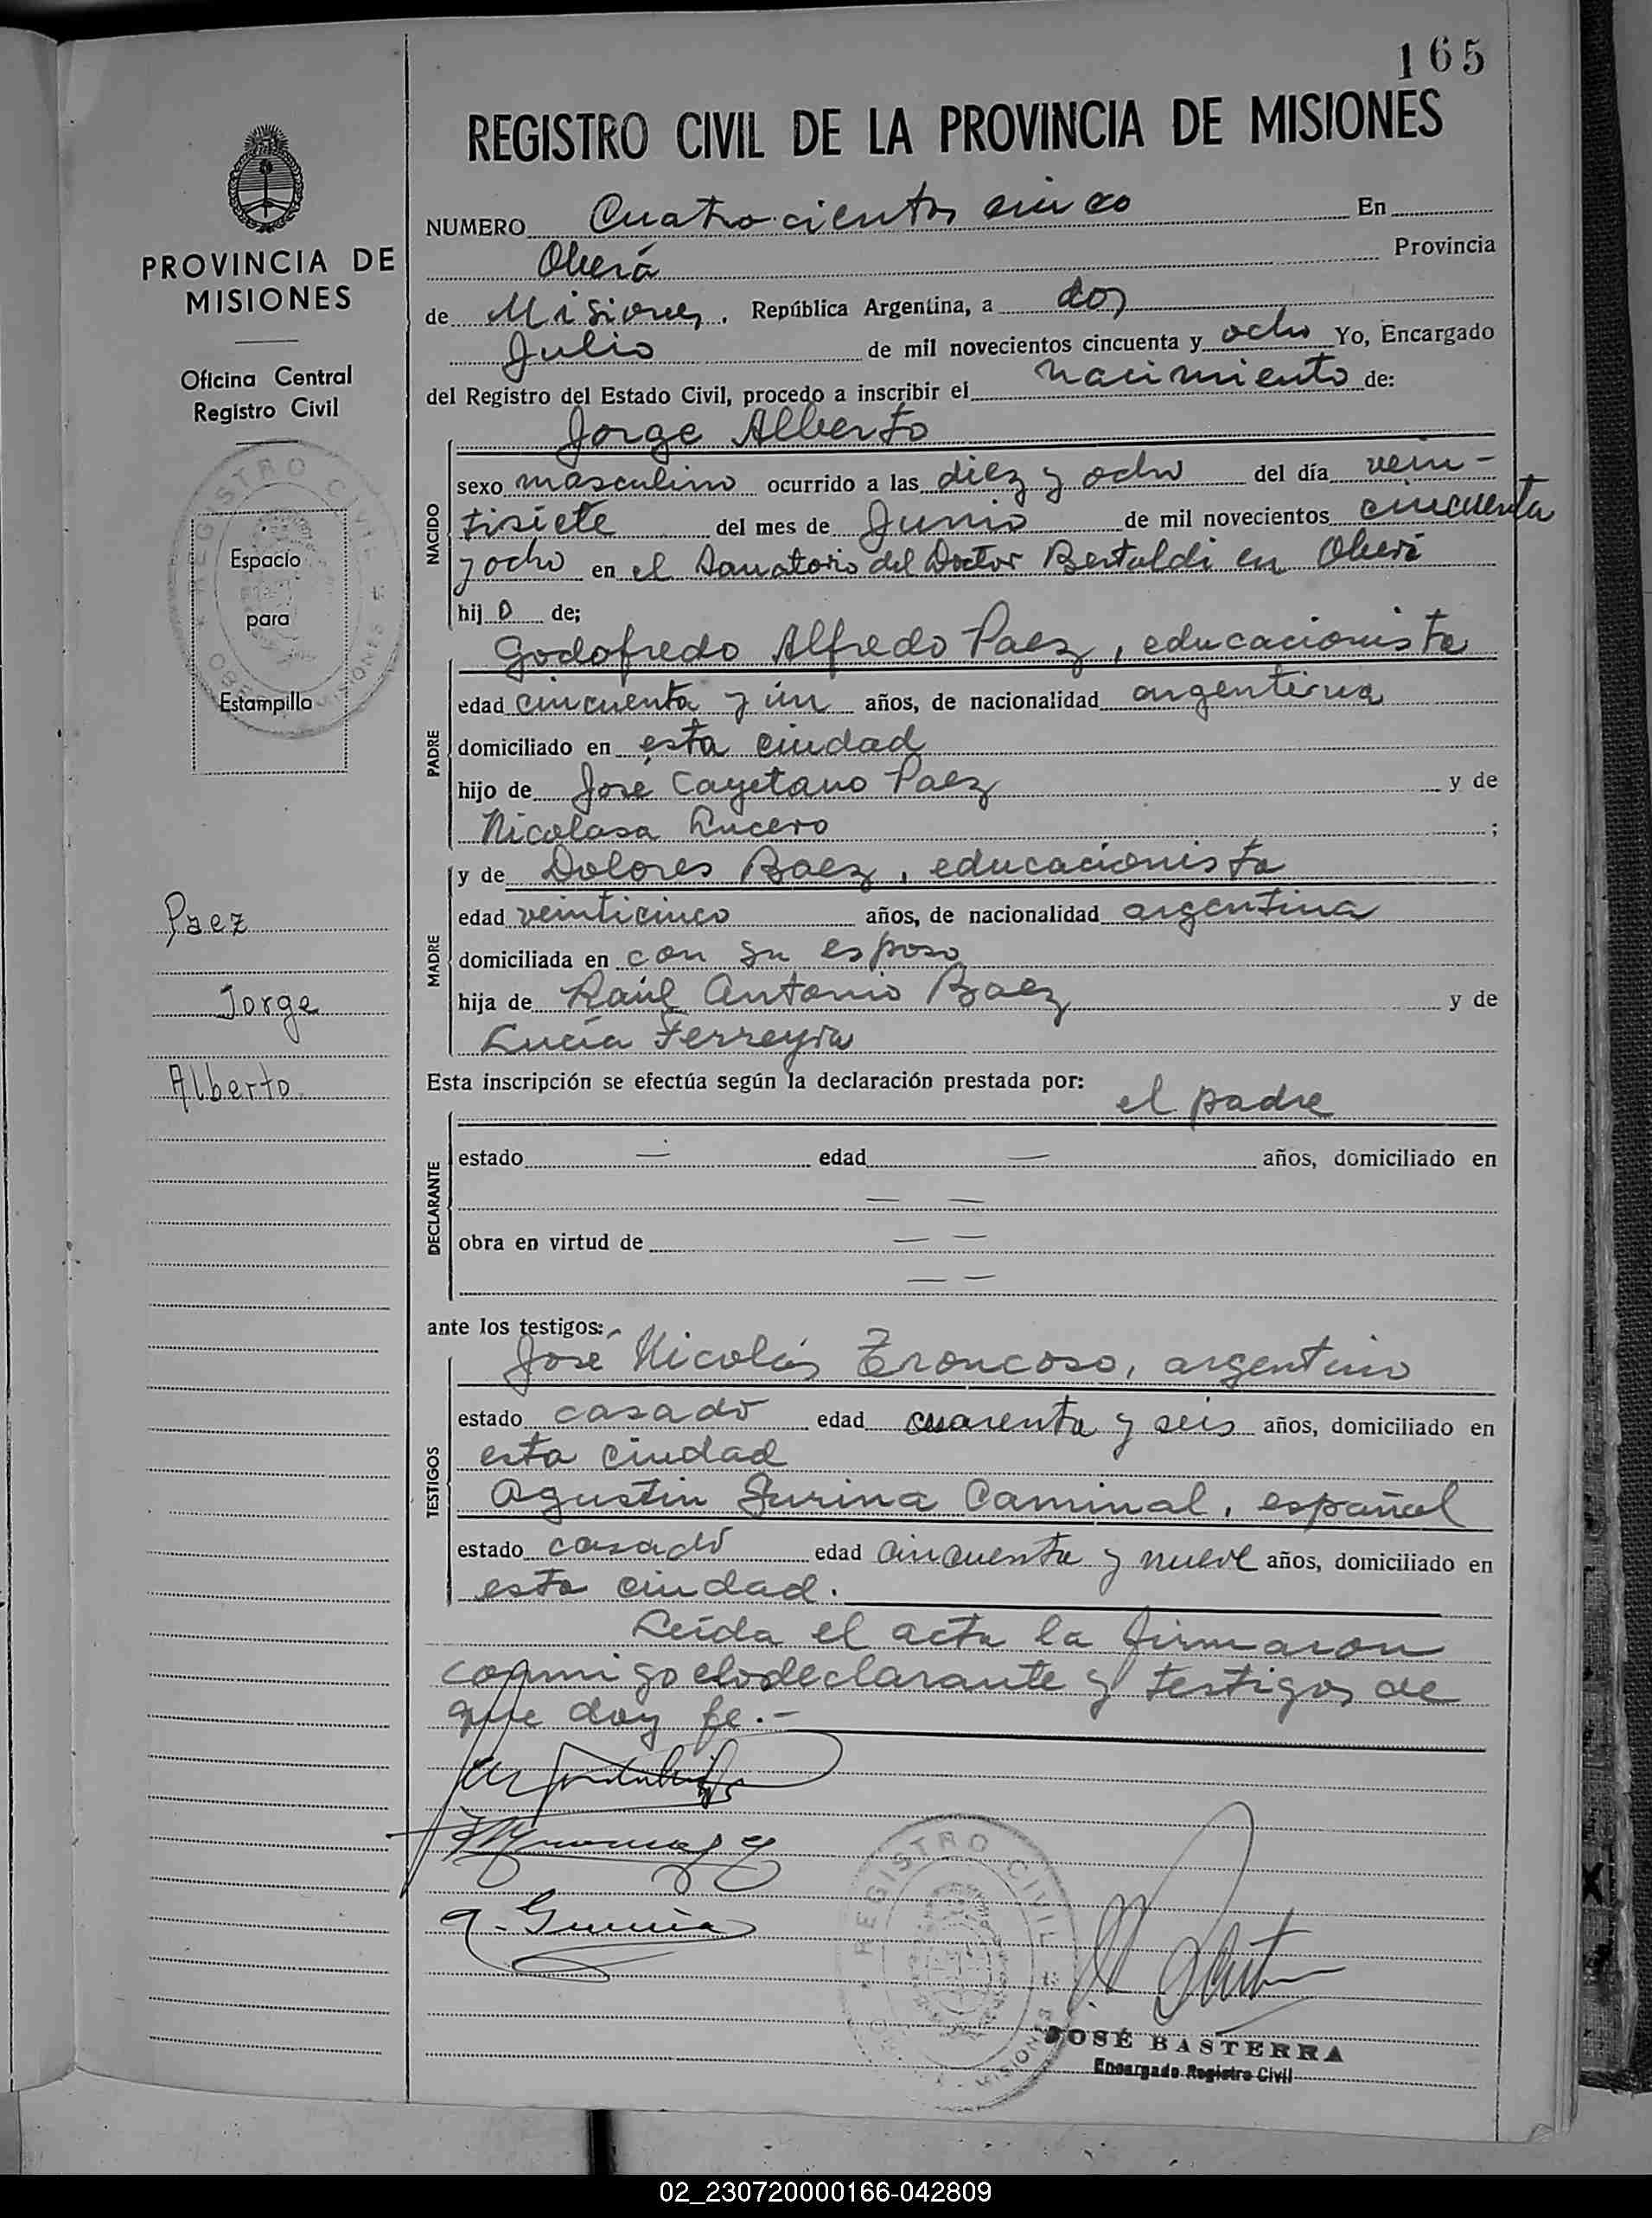 165
REGISTRO CIVIL DE LA PROVINCIA DE MISIONES
PROVINCIA DE
MISIONES
Oficina Central
Registro Civil
Espacio
para
Estampilla
REGISTRO CIVIL
MISIONES
Paez
Jorge
Alberto
NUMERO Cuatrocientos cinco En
Oberá Provincia
de Misiones, República Argentina, a dos
Julio de mil novecientos cincuenta y ocho Yo, Encargado
del Registro del Estado Civil, procedo a inscribir el nacimiento de:
Jorge Alberto
NACIDO
sexo masculino ocurrido a las diez y ocho del día vein-
tisiete del mes de Junio de mil novecientos cincuenta
y ocho en el Sanatorio del Doctor Bertoldi en Oberá
hijo de;
Godofredo Alfredo Paez, educacionista
PADRE
edad cincuenta y un años, de nacionalidad argentina
domiciliado en esta ciudad
hijo de José Cayetano Paez y de
Nicolasa Lucero ;
y de Dolores Baez, educacionista
MADRE
edad veinticinco años, de nacionalidad argentina
domiciliada en con su esposo
hija de Raúl Antonio Baez y de
Lucía Ferreyra
Esta inscripción se efectúa según la declaración prestada por: el padre
DECLARANTE
estado — edad — años, domiciliado en
— —
obra en virtud de — —
— —
ante los testigos:
José Nicolás Troncoso, argentino
TESTIGOS
estado casado edad cuarenta y seis años, domiciliado en
esta ciudad
Agustin Gurina Caminal, español
estado casado edad cincuenta y nueve años, domiciliado en
esta ciudad.
Leída el acta la firmaron
conmigo declarante y testigos de
que doy fe.-
REGISTRO CIVIL
MISIONES
JOSÉ BASTERRA
Encargado Registro Civil
02_230720000166-042809